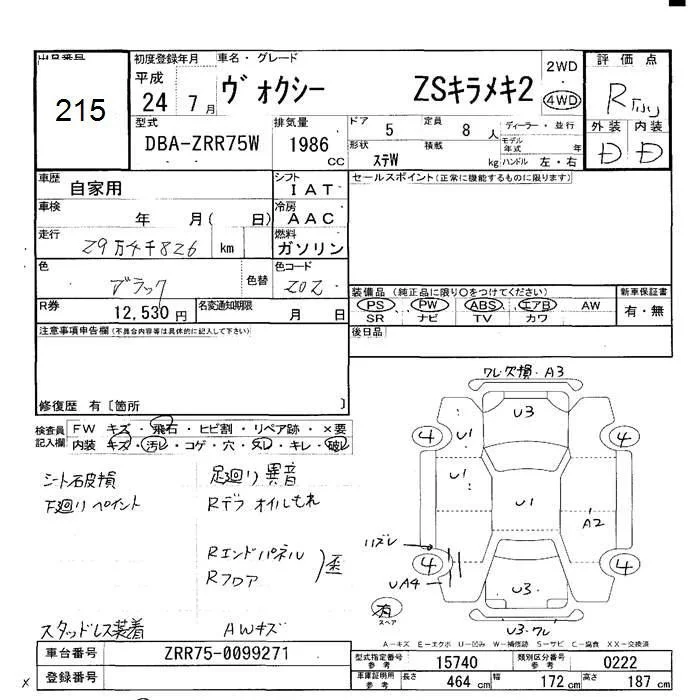 出品番号
215
初度登録年月
平成
24 7月
車名・グレード
ヴォクシー ZSキラメキ2
2WD
4WD
評価点
R
外装 内装
D D
型式
DBA-ZRR75W
排気量
1986 CC
ドア 5 定員 8 人
形状 ステW 積載 kg
ディーラー・並行
モデル年式 年
ハンドル 左・右
車歴 自家用
シフト IAT
車検 年 月( 日)
冷房 AAC
走行 29万4千826 km
燃料 ガソリン
色 ブラック 色替
色コード 202
R券 12,530円
名変通知期限 月 日
セールスポイント(正常に機能するものに限ります)
装備品(純正品に限り○をつけてください)
PS PW ABS エアB AW
SR ナビ TV カワ
新車保証書
有・無
後日品
注意事項申告欄(不具合内容等は具体的に記入して下さい)
修復歴 有〔箇所 〕
検査員記入欄
FW キズ・飛石・ヒビ割・リペア跡・×要
内装 キズ・汚レ・コゲ・穴・スレ・キレ・破レ
シート石皮損
下廻りペイント
足廻り異音
Rデフ オイルもれ
Rエンドパネル
Rフロア
歪
スタッドレス装着
AWキズ
ワレ・欠損・A3
U3
U1
U1
U1
A2
4
4
4
4
ハズレ
UA4
U3
U3・ワレ
有
スペア
A-キズ E-エクボ U-凹み W-補修跡 S-サビ C-腐食 XX-交換済
車台番号 ZRR75-0099271
登録番号
型式指定番号 参考 15740
類別区分番号 参考 0222
車庫証明用 参考 長さ 464 cm 幅 172 cm 高さ 187 cm
x